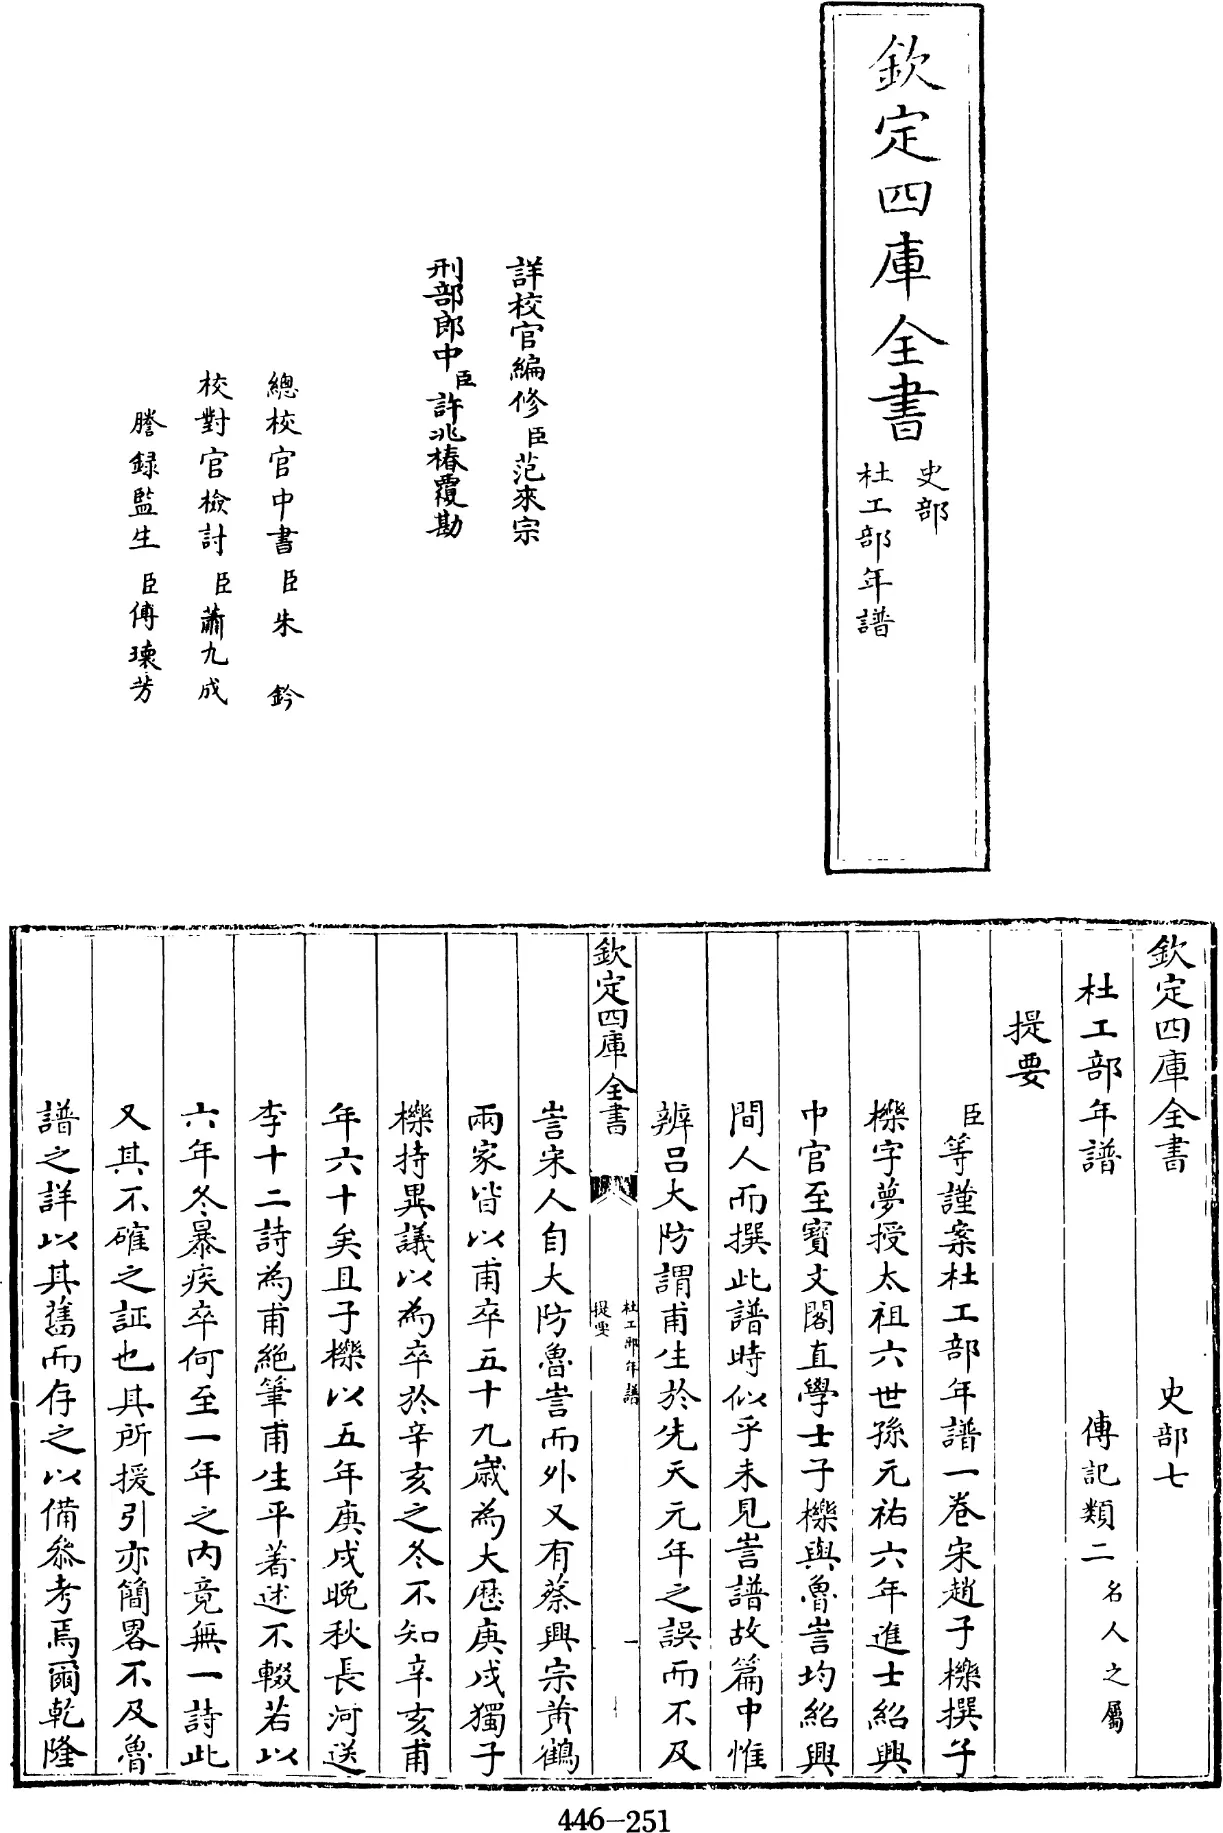 欽定四庫全書
史部
杜工部年譜
詳校官編修臣范來宗
刑部郎中臣許兆椿覆勘
總校官中書臣朱鈐
校對官檢討臣蕭九成
謄録監生臣傅瓌芳
欽定四庫全書 史部七
杜工部年譜 傳記類二名人之屬
提要
臣等謹案杜工部年譜一卷宋趙子櫟撰子
櫟字夢授太祖六世孫元祐六年進士紹興
中官至寳文閣直學士子櫟與魯訔均紹興
間人而撰此譜時似乎未見訔譜故篇中惟
辨吕大防謂甫生於先天元年之誤而不及
欽定四庫全書
杜工部年譜
提要
一
訔宋人自大防魯訔而外又有蔡興宗黄鶴
兩家皆以甫卒五十九歳為大厯庚戍獨子
櫟持異議以為卒於辛亥之冬不知辛亥甫
年六十矣且子櫟以五年庚戍晚秋長河送
李十二詩為甫絶筆甫生平著述不輟若以
六年冬暴疾卒何至一年之内竟無一詩此
又其不確之証也其所援引亦簡畧不及魯
譜之詳以其舊而存之以備叅考焉爾乾隆
446-251